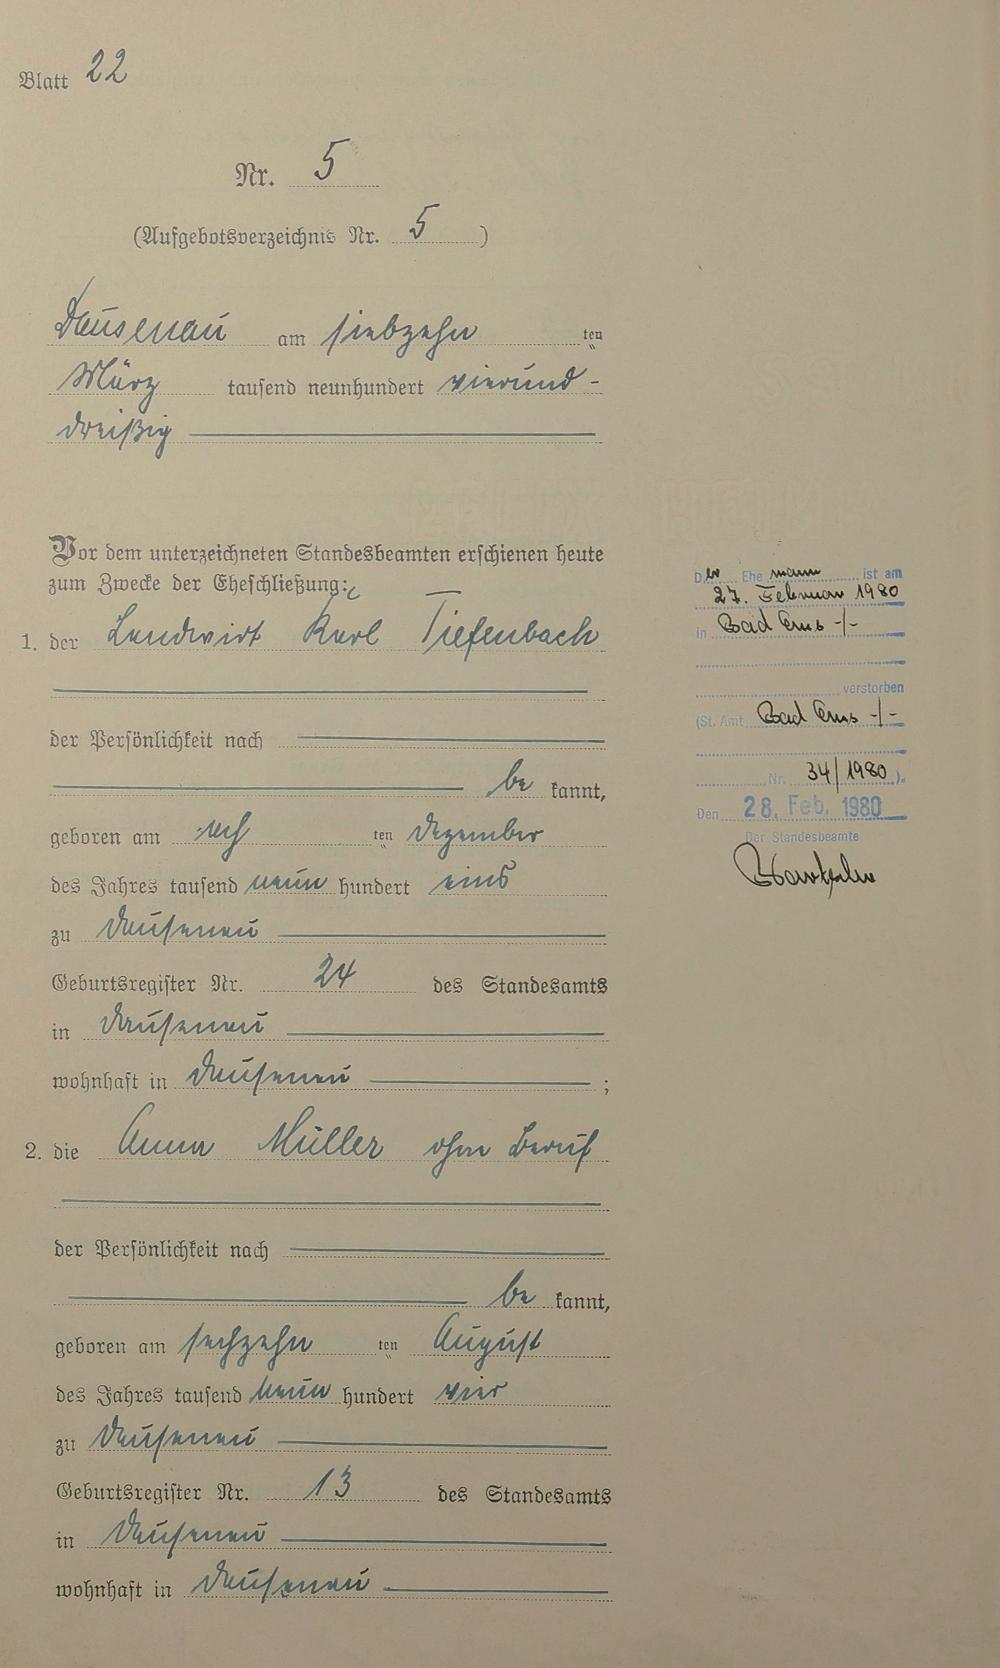 Blatt 22
Nr. 5
(Aufgebotsverzeichnis Nr. 5 )
Dausenau am siebzehn ten
März tausend neunhundert vierund-
dreißig
Vor dem unterzeichneten Standesbeamten erschienen heute
zum Zwecke der Eheschließung:
1. der Landwirt Karl Tiefenbach
der Persönlichkeit nach
be kannt,
geboren am ten Dezember
des Jahres tausend neun hundert eins
zu Dausenau
Geburtsregister Nr. 24 des Standesamts
in Dausenau
wohnhaft in Dausenau ;
2. die Anna Müller ohne Beruf
der Persönlichkeit nach
be kannt,
geboren am sechzehn ten August
des Jahres tausend neun hundert vier
zu Dausenau
Geburtsregister Nr. 13 des Standesamts
in Dausenau
wohnhaft in Dausenau
Der Ehe mann ist am
27. Februar 1980
in Bad Ems -/-
verstorben
(St. Amt Bad Ems -/-
Nr. 34/1980 ).
Den 28. Feb. 1980
Der Standesbeamte